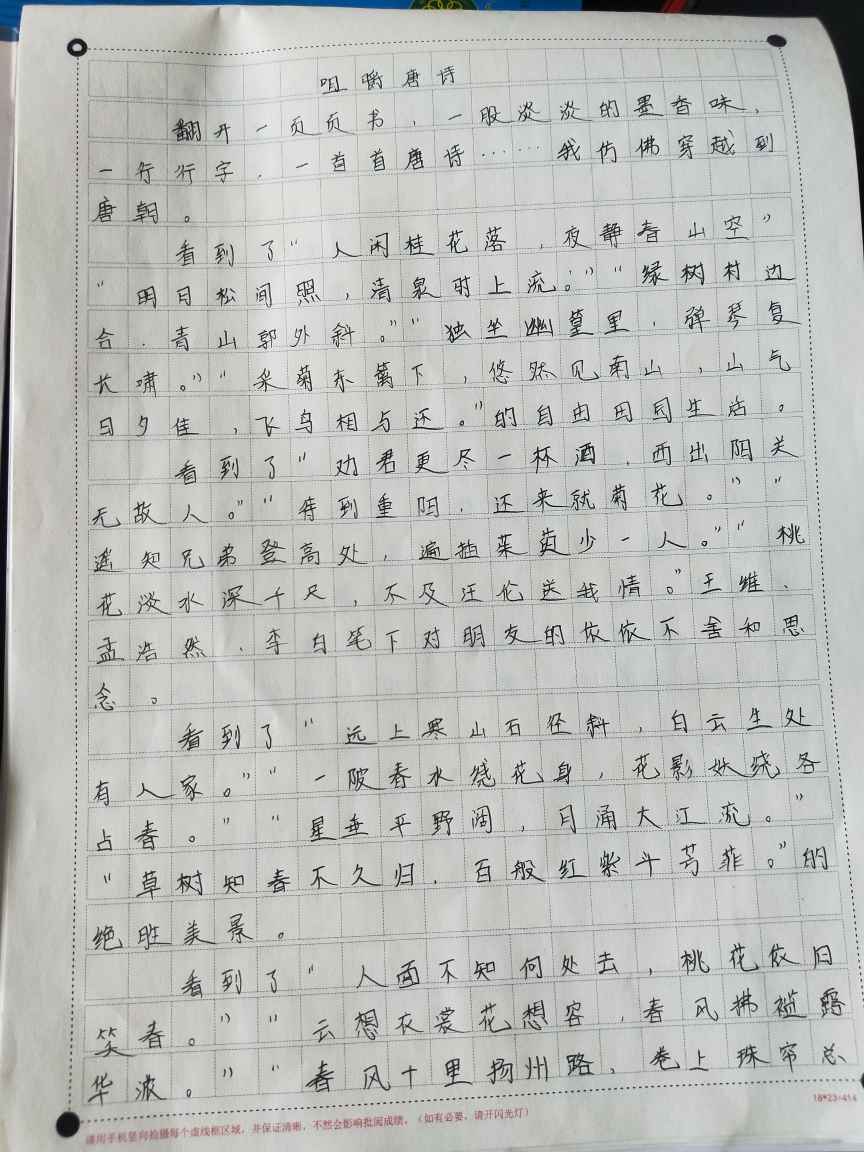 咀嚼唐诗
翻开一页页书，一股淡淡的墨香味，
一行行字，一首首唐诗……我仿佛穿越到
唐朝。
看到了“人闲桂花落，夜静春山空”
“明月松间照，清泉时上流。”“绿树村边
合，青山郭外斜。”“独坐幽篁里，弹琴复
长啸。”“采菊东篱下，悠然见南山，山气
日夕佳，飞鸟相与还。”的自由田园生活。
看到了“劝君更尽一杯酒，西出阳关
无故人。”“待到重阳，还来就菊花。”“
遥知兄弟登高处，遍插茱萸少一人。”“桃
花淡水深千尺，不及汪伦送我情。”王维、
孟浩然、李白笔下对朋友的依依不舍和思
念。
看到了“远上寒山石径斜，白云生处
有人家。”“一陂春水绕花身，花影妖绕各
占春。”“星垂平野阔，月涌大江流。”
“草树知春不久归，百般红紫斗芳菲。”的
绝胜美景。
看到了“人面不知何处去，桃花依旧
笑春。”“云想衣裳花想容，春风拂槛露
华浓。”“春风十里扬州路，卷上珠帘总
请用手机竖向拍摄每个虚线框区域，并保证清晰，不然会影响批阅成绩。（如有必要，请开闪光灯）
18*23=414